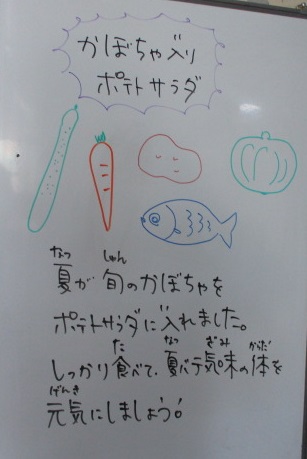 かぼちゃ入り
ポテトサラダ
なつ しゅん
夏が旬のかぼちゃを
ポテトサラダに入れました。
た なつ ぎみ からだ
しっかり食べて、夏バテ気味の体を
げんき
元気にしましょう!